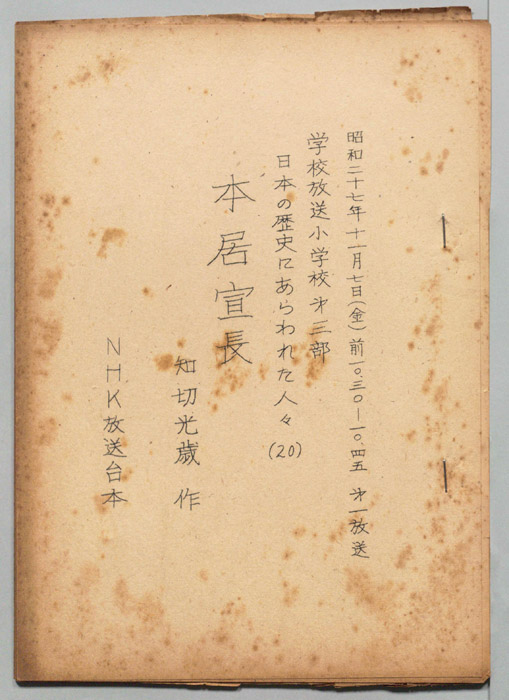 昭和二十七年十一月七日(金)前一〇.三〇―一〇.四五 第一放送
学校放送小学校第三部
日本の歴史にあらわれた人々(20)
本居宣長
知切光歳 作
NHK放送台本